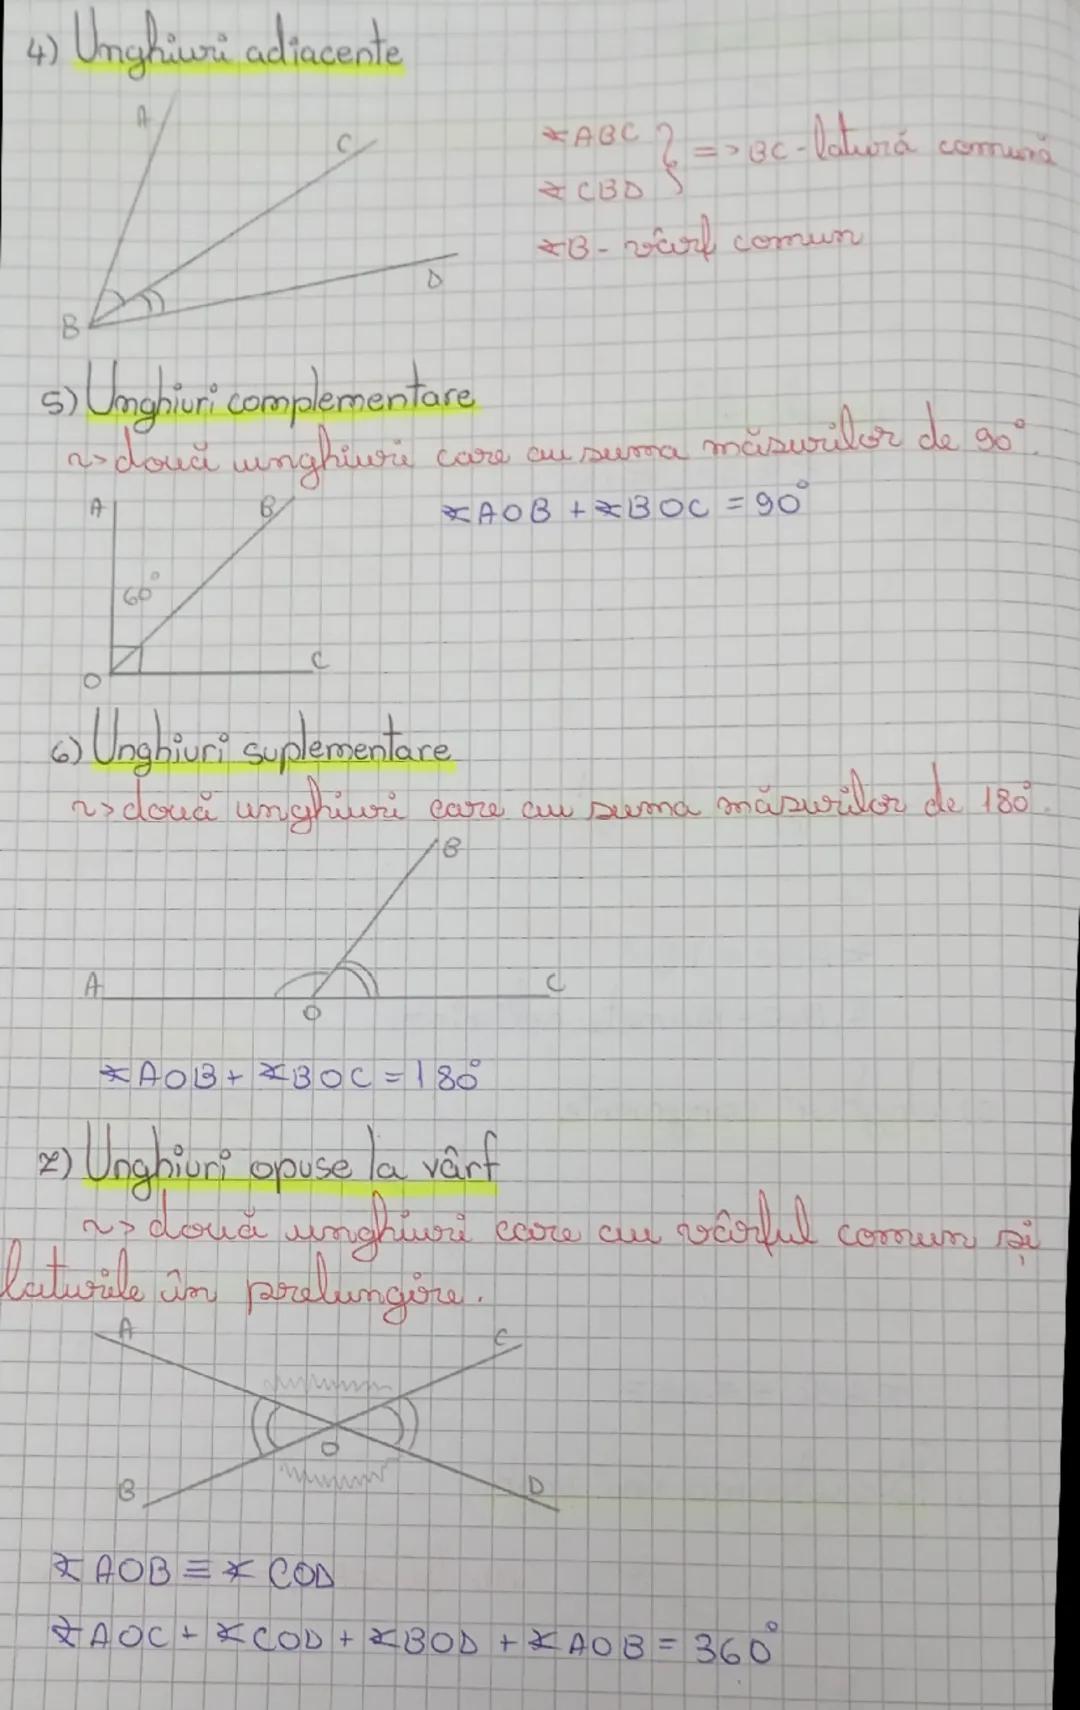 4) Unghiuri adiacente
A
C
D
B
∢ABC } => BC - latură comună
∢CBD
∢B - vârf comun
5) Unghiuri complementare
~> două unghiuri care au suma măsurilor de 90°.
A B
60°
O C
∢AOB + ∢BOC = 90°
6) Unghiuri suplementare
~> două unghiuri care au suma măsurilor de 180°.
B
A C
O
∢AOB + ∢BOC = 180°
7) Unghiuri opuse la vârf
~> două unghiuri care au vârful comun și
laturile în prelungire.
A C
O
B D
∢AOB ≡ ∢COD
∢AOC + ∢COD + ∢BOD + ∢AOB = 360°